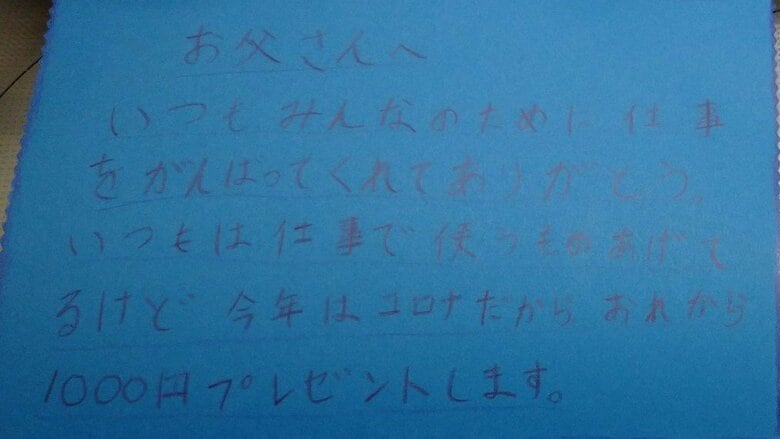 お父さんへ
いつもみんなのために仕事
をがんばってくれてありがとう。
いつもは仕事で使うものあげて
るけど今年はコロナだからおれから
1000円プレゼントします。